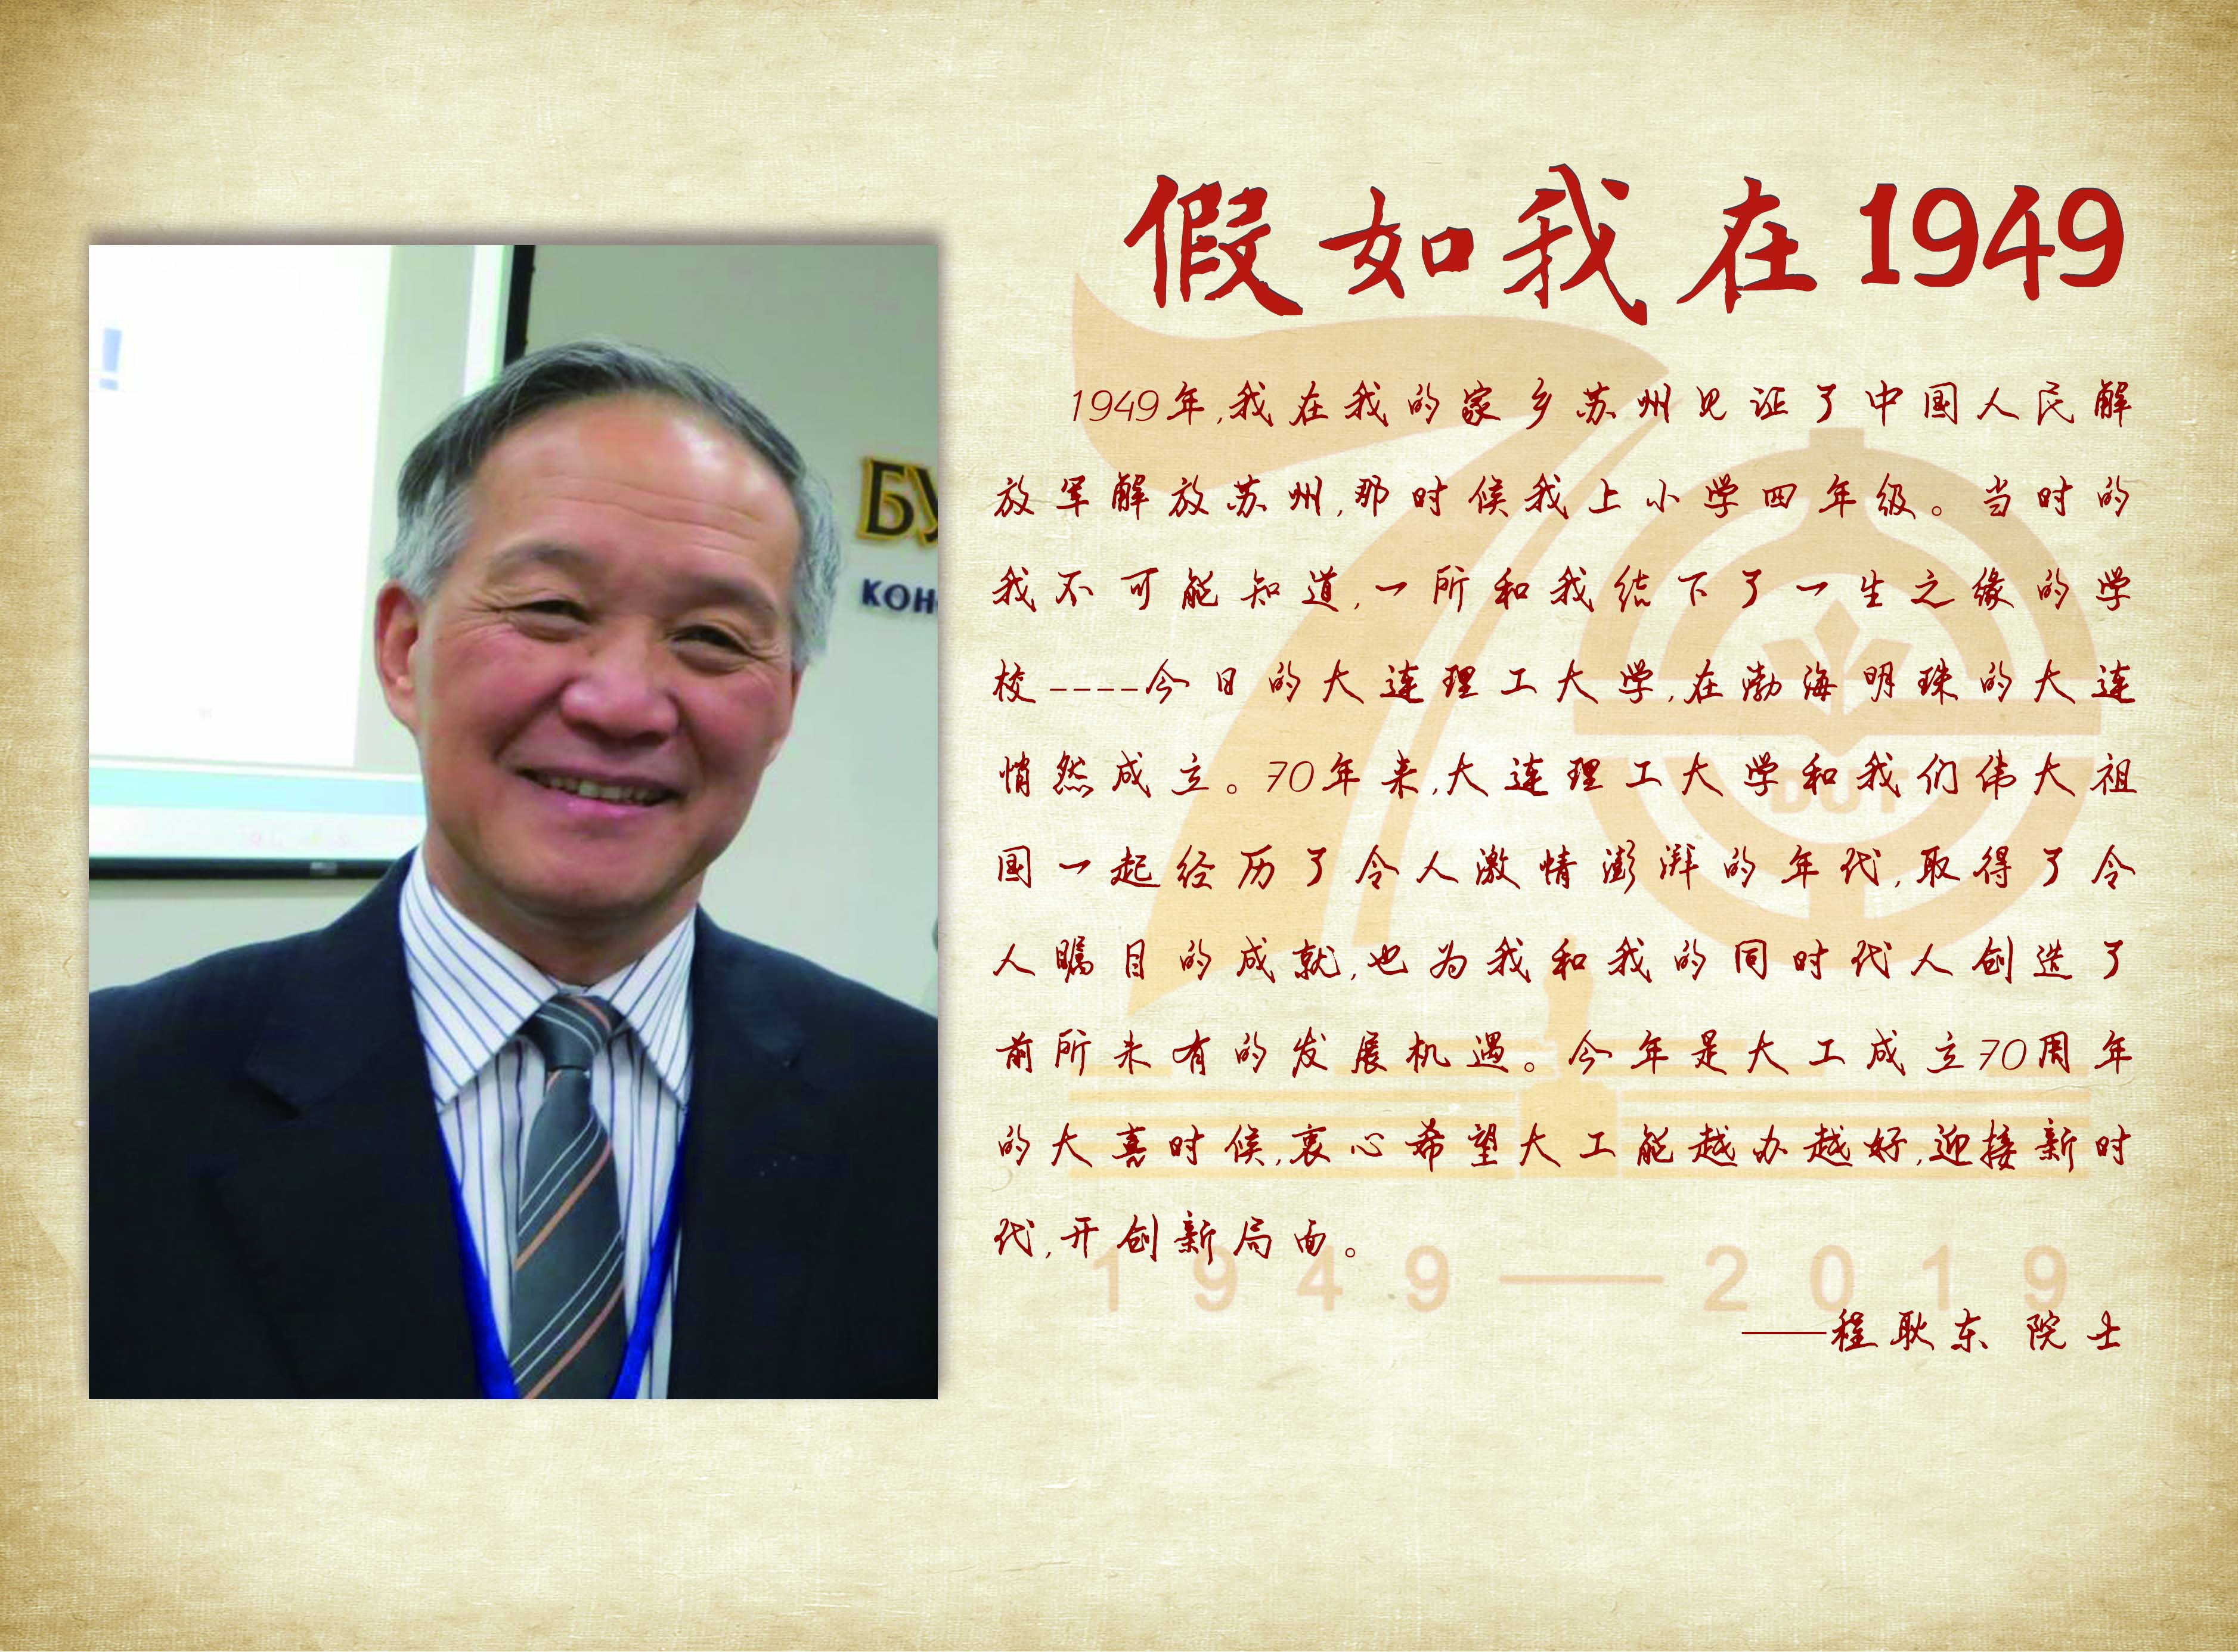 假如我在1949
1949年,我在我的家乡苏州见证了中国人民解
放军解放苏州,那时候我上小学四年级。当时的
我不可能知道,一所和我结下了一生之缘的学
校----今日的大连理工大学,在渤海明珠的大连
悄然成立。70年来,大连理工大学和我们伟大祖
国一起经历了令人激情澎湃的年代,取得了令
人瞩目的成就,也为我和我的同时代人创造了
前所未有的发展机遇。今年是大工成立70周年
的大喜时候,衷心希望大工能越办越好,迎接新时
代,开创新局面。
——程耿东 院士
1949—2019
DUT
!
БУ
КОН